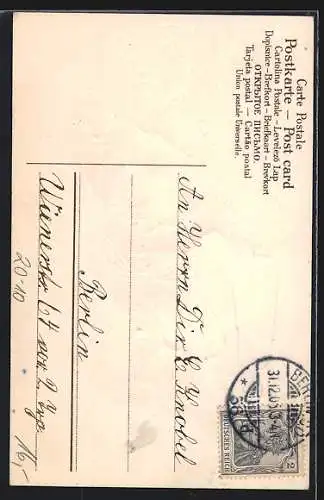 Carte Postale
Postkarte – Post card
Cartolina Postale – Levelező Lap
Dopisnice – Brefkort – Briefkaart – Brevkort
ОТКРЫТОЕ ПИСЬМО.
Tarjeta postal – Cartão postal
Union postale Universelle.
BERLIN
31.12.05
DEUTSCHES REICH
2
An Herrn Dir. C. Knobel
Berlin
67
20-10
16,-